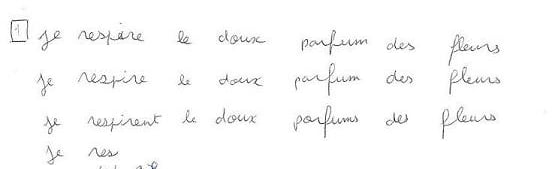 1 je respire le doux parfum des fleurs
je respire le doux parfum des fleurs
je respirent le doux parfums des fleurs
je res